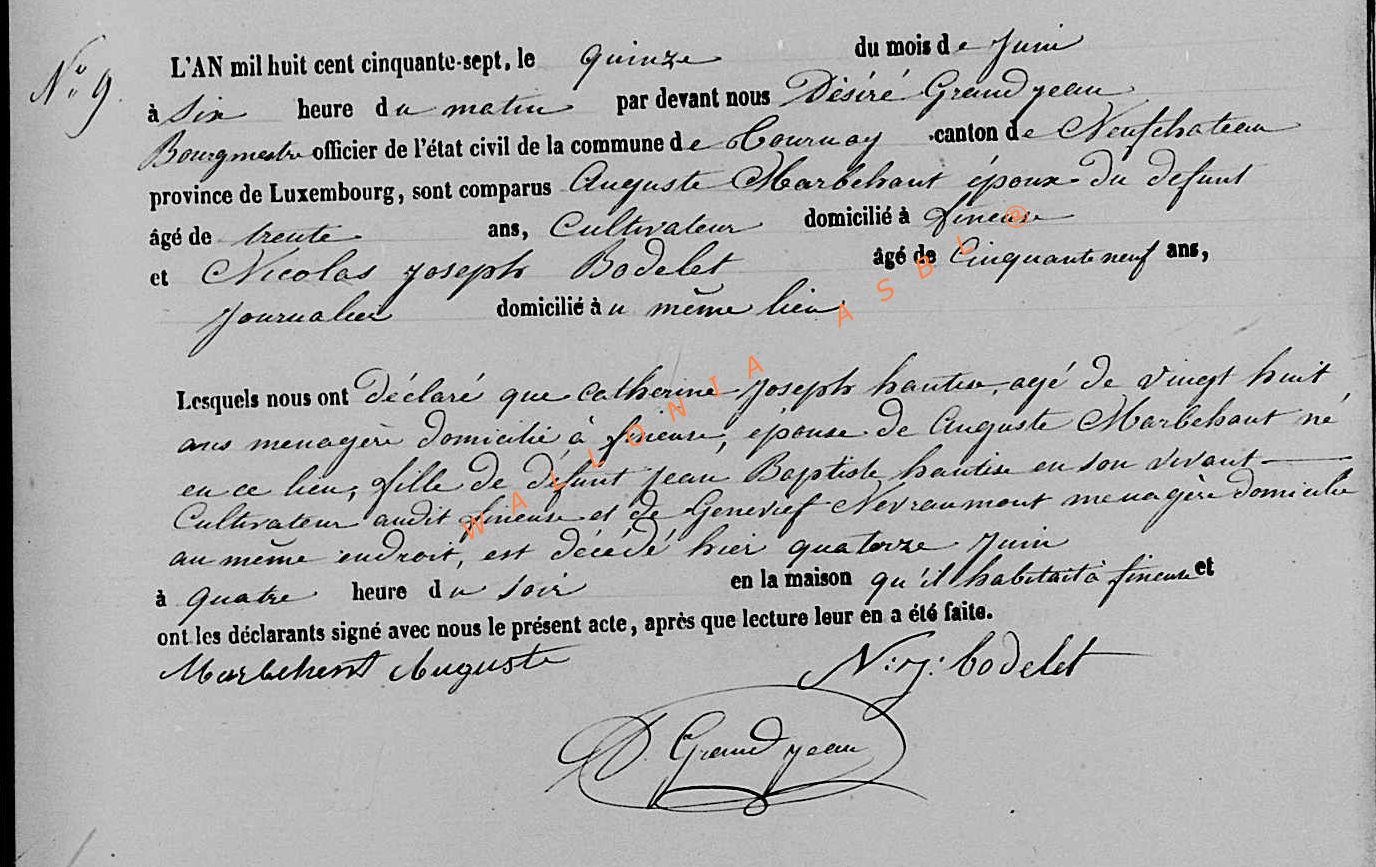 N° 9.
L'AN mil huit cent cinquante-sept, le quinze du mois de Juin
à Six heure du matin par devant nous Désiré Grandjean
Bourgmestre officier de l'état civil de la commune de Tournay canton de Neufchateau
province de Luxembourg, sont comparus Auguste Marbehant époux du defunt
âgé de trente ans, Cultivateur domicilié à fineuse
et Nicolas joseph Bodelet âgé de Cinquante neuf ans,
Journalier domicilié au même lieu
Lesquels nous ont déclaré que catherine Joseph hautise, agé de vingt huit
ans menagère domicilié à fineuse, épouse de Auguste Marbehant né
en ce lieu, fille de défunt jean Baptiste hautise en son vivant
Cultivateur audit fineuse et de Genevief Nevraumont menagère domicilié
au même endroit, est décédé hier quatorze Juin
à quatre heure du soir en la maison qu'il habitait à fineuse et
ont les déclarants signé avec nous le présent acte, après que lecture leur en a été faite.
Marbehant Auguste N: j: bodelet
D. Grandjean
WALLONIA ASBL ©